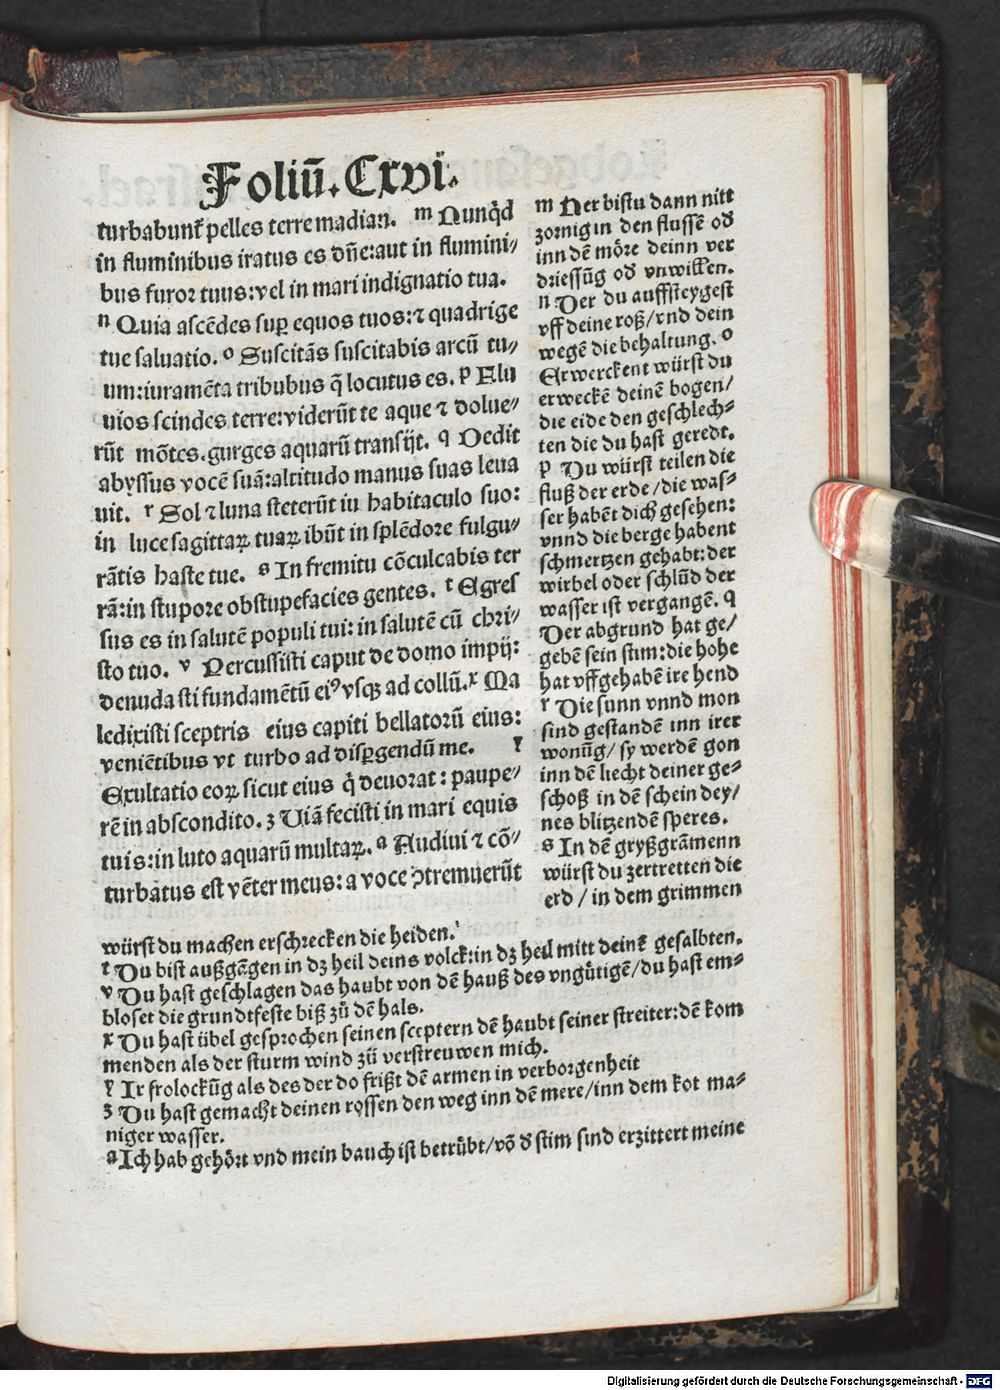 Foliū. Cxvi.
turbabunt̄ pelles terre madian. m Nunq̇d
in fluminibus iratus es dn̄e:aut in flumini⸗
bus furoꝛ tuus:vel in mari indignatio tua.
n Quia aſcēdes ſuꝑ equos tuos:⁊ quadrige
tue ſaluatio. o Suſcitās ſuſcitabis arcū tu⸗
um:iuramēta tribubus q̄ locutus es. p Flu
uios ſcindes terre:viderūt te aque ⁊ dolue⸗
rūt mōtes.gurges aquarū tranſijt. q Dedit
abyſſus vocē ſuā:altitudo manus ſuas leua
uit. r Sol ⁊ luna ſteterūt in habitaculo ſuo:
in luce ſagittaꝝ tuaꝝ ibūt in ſplēdore fulgu⸗
rātis haſte tue. s In fremitu cōculcabis ter
rā:in ſtupore obſtupefacies gentes. t Egreſ
ſus es in ſalutē populi tui: in ſalutē cū chꝛi⸗
ſto tuo. v Percuſſiſti caput de domo impij:
denuda ſti fundamētū eiꝰ vſqꝫ ad collū. x Ma
ledixiſti ſceptris eius capiti bellatorū eius:
veniētibus vt turbo ad diſꝑgendū me. y
Exultatio eoꝝ ſicut eius q̇ deuorat: paupe⸗
rē in abſcondito. z Uiā feciſti in mari equis
tuis:in luto aquarū multaꝝ. a Audiui ⁊ cō⸗
turbatus eſt vēter meus: a voce ꝯtremuerūt
m Herr biſtu dann nitt
zoꝛnig in den fluſſē od̄
inn dē mo̊re deinn ver
dꝛieſſūg od̄ vnwillen.
n Der du auffſteygeſt
vff deine roß/vnd dein
wegē die behaltung. o
Erwerckent würſt du
erweckē deinē bogen/
die eide den geſchlech⸗
ten die du haſt geredt.
p Du würſt teilen die
fluß der erde/die waſ⸗
ſer habēt dich geſehen:
vnnd die berge habent
ſchmertzen gehabt:der
wirbel oder ſchlūd der
waſſer iſt vergangē. q
Der abgrund hat ge/
gebē ſein ſtim:die hohe
hat vffgehabē ire hend
r Die ſunn vnnd mon
ſind geſtandē inn irer
wonūg/ ſy werdē gon
inn dē liecht deiner ge⸗
ſchoß in dē ſchein dey/
nes blitzendē ſperes.
s In dē gryßgrāmenn
würſt du zertretten die
erd / in dem grimmen
würſt du machen erſchrecken die heiden.
t Du biſt außgāgen in dz heil deins volck:in dz heil mitt deinē geſalbten.
v Du haſt geſchlagen das haubt von dē hauß des vngütigē/du haſt em⸗
bloſet die grundtfeſte biß zů dē hals.
x Du haſt übel geſpꝛochen ſeinen ſceptern dē haubt ſeiner ſtreiter:dē kom
menden als der ſturm wind zů verſtreuwen mich.
y Ir frolockūg als des der do frißt dē armen in verborgenheit
z Du haſt gemacht deinen roſſen den weg inn dē mere/inn dem kot ma⸗
niger waſſer.
a Ich hab gehöꝛt vnd mein bauch iſt betrübt/vō d̄ ſtim ſind erzittert meine
Digitalisierung gefördert durch die Deutsche Forschungsgemeinschaft - DFG